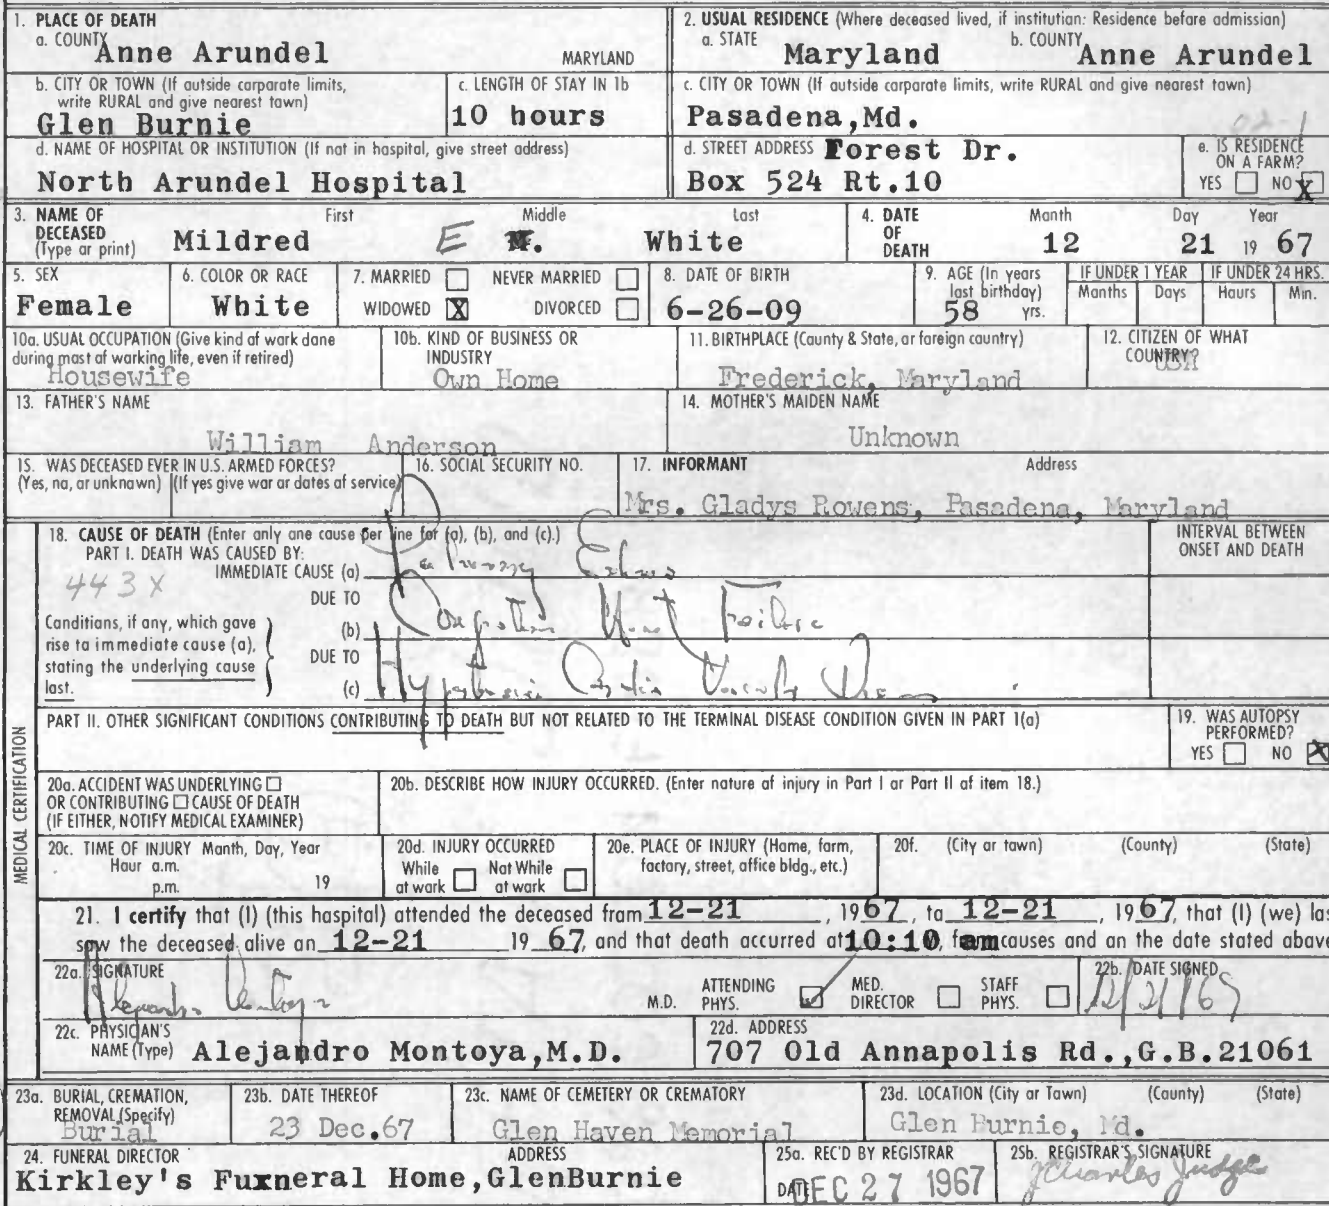 1. PLACE OF DEATH
a. COUNTY Anne Arundel MARYLAND
2. USUAL RESIDENCE (Where deceased lived, if institution: Residence before admission)
a. STATE Maryland b. COUNTY Anne Arundel
b. CITY OR TOWN (If outside corporate limits,
write RURAL and give nearest town)
Glen Burnie
c. LENGTH OF STAY IN 1b
10 hours
c. CITY OR TOWN (If outside corporate limits, write RURAL and give nearest town)
Pasadena,Md.
02-1
d. NAME OF HOSPITAL OR INSTITUTION (If not in hospital, give street address)
North Arundel Hospital
d. STREET ADDRESS Forest Dr.
Box 524 Rt.10
e. IS RESIDENCE
ON A FARM?
YES NO X
3. NAME OF
DECEASED
(Type or print)
First Middle Last
Mildred E M. White
4. DATE
OF
DEATH
Month Day Year
12 21 19 67
5. SEX
Female
6. COLOR OR RACE
White
7. MARRIED NEVER MARRIED
WIDOWED X DIVORCED
8. DATE OF BIRTH
6-26-09
9. AGE (In years
last birthday)
58 yrs.
IF UNDER 1 YEAR
Months Days
IF UNDER 24 HRS.
Hours Min.
10a. USUAL OCCUPATION (Give kind of work done
during most of working life, even if retired)
Housewife
10b. KIND OF BUSINESS OR
INDUSTRY
Own Home
11. BIRTHPLACE (County & State, or foreign country)
Frederick, Maryland
12. CITIZEN OF WHAT
COUNTRY?
USA
13. FATHER'S NAME
William Anderson
14. MOTHER'S MAIDEN NAME
Unknown
15. WAS DECEASED EVER IN U.S. ARMED FORCES?
(Yes, no, or unknown) (If yes give war or dates of service)
16. SOCIAL SECURITY NO.
17. INFORMANT Address
Mrs. Gladys Rowens, Pasadena, Maryland
18. CAUSE OF DEATH (Enter only one cause per line for (a), (b), and (c).)
INTERVAL BETWEEN
ONSET AND DEATH
PART I. DEATH WAS CAUSED BY:
IMMEDIATE CAUSE (a) Pulmonary Edema
443X
DUE TO
Conditions, if any, which gave
rise to immediate cause (a),
stating the underlying cause
last.
(b) Congestive Heart Failure
DUE TO
(c) Hypertensive Cardio Vascular Disease
PART II. OTHER SIGNIFICANT CONDITIONS CONTRIBUTING TO DEATH BUT NOT RELATED TO THE TERMINAL DISEASE CONDITION GIVEN IN PART 1(a)
19. WAS AUTOPSY
PERFORMED?
YES NO X
MEDICAL CERTIFICATION
20a. ACCIDENT WAS UNDERLYING
OR CONTRIBUTING CAUSE OF DEATH
(IF EITHER, NOTIFY MEDICAL EXAMINER)
20b. DESCRIBE HOW INJURY OCCURRED. (Enter nature of injury in Part I or Part II of item 18.)
20c. TIME OF INJURY Month, Day, Year
Hour a.m.
p.m. 19
20d. INJURY OCCURRED
While Not While
at work at work
20e. PLACE OF INJURY (Home, farm,
factory, street, office bldg., etc.)
20f. (City or town) (County) (State)
21. I certify that (I) (this hospital) attended the deceased from 12-21, 1967, to 12-21, 1967, that (I) (we) las
saw the deceased alive on 12-21 19 67, and that death occurred at 10:10, am causes and on the date stated above
22a. SIGNATURE
Alejandro Montoya
M.D.
ATTENDING
PHYS.
MED.
DIRECTOR
STAFF
PHYS.
22b. DATE SIGNED
12/21/67
22c. PHYSICIAN'S
NAME (Type) Alejandro Montoya,M.D.
22d. ADDRESS
707 Old Annapolis Rd.,G.B.21061
23a. BURIAL, CREMATION,
REMOVAL (Specify)
Burial
23b. DATE THEREOF
23 Dec.67
23c. NAME OF CEMETERY OR CREMATORY
Glen Haven Memorial
23d. LOCATION (City or Town) (County) (State)
Glen Burnie, Md.
24. FUNERAL DIRECTOR ADDRESS
Kirkley's Fuxneral Home,GlenBurnie
25a. REC'D BY REGISTRAR
DATE DEC 27 1967
25b. REGISTRAR'S SIGNATURE
J Charles Judge